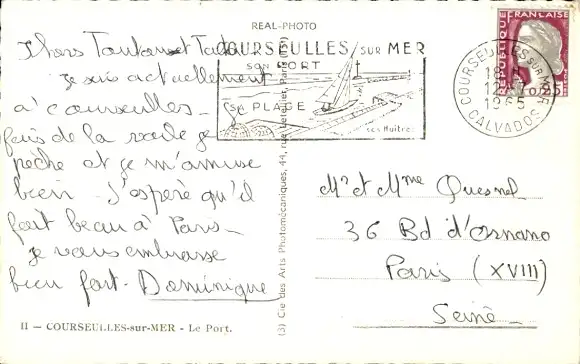 REAL-PHOTO
Chers Tonton et Tata
je suis actuellement
à Courseulles. Je
fais de la voile je
pêche et je m'amuse
bien. J'espère qu'il
fait beau à Paris.
je vous embrasse
bien fort. Dominique
II — COURSEULLES-sur-MER - Le Port.
COURSEULLES SUR MER
SON PORT
SA PLAGE
ses Huîtres
(3) Cie des Arts Photomécaniques, 44, rue Letellier, Paris (15e)
REPUBLIQUE FRANÇAISE
0,25
COURSEULLES SUR MER
18 H
12
1965
CALVADOS
Mr et Mme Quesnel
36 Bd d'Ornano
Paris (XVIII)
Seine